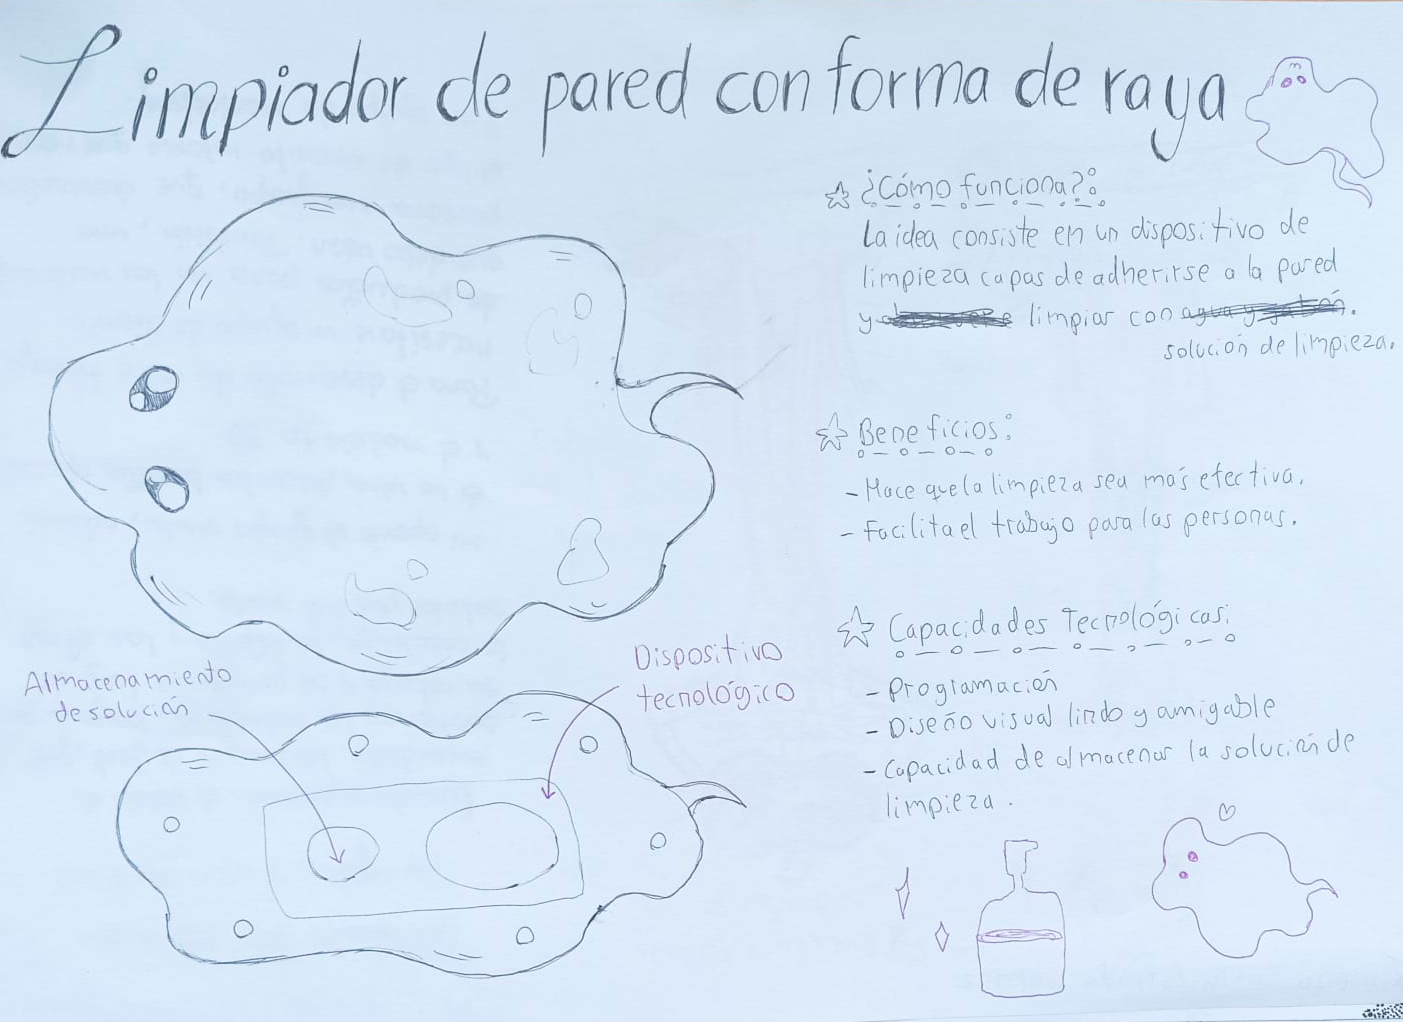 Limpiador de pared con forma de raya
☆ ¿Cómo funciona?:
La idea consiste en un dispositivo de
limpieza capas de adherirse a la pared
y limpiar con agua y jabón.
solución de limpieza.
☆ Beneficios:
- Hace que la limpieza sea más efectiva.
- Facilita el trabajo para las personas.
☆ Capacidades Tecnológicas:
- Programación
- Diseño visual lindo y amigable
- Capacidad de almacenar la solución de
limpieza.
Almacenamiento
de solución
Dispositivo
tecnológico